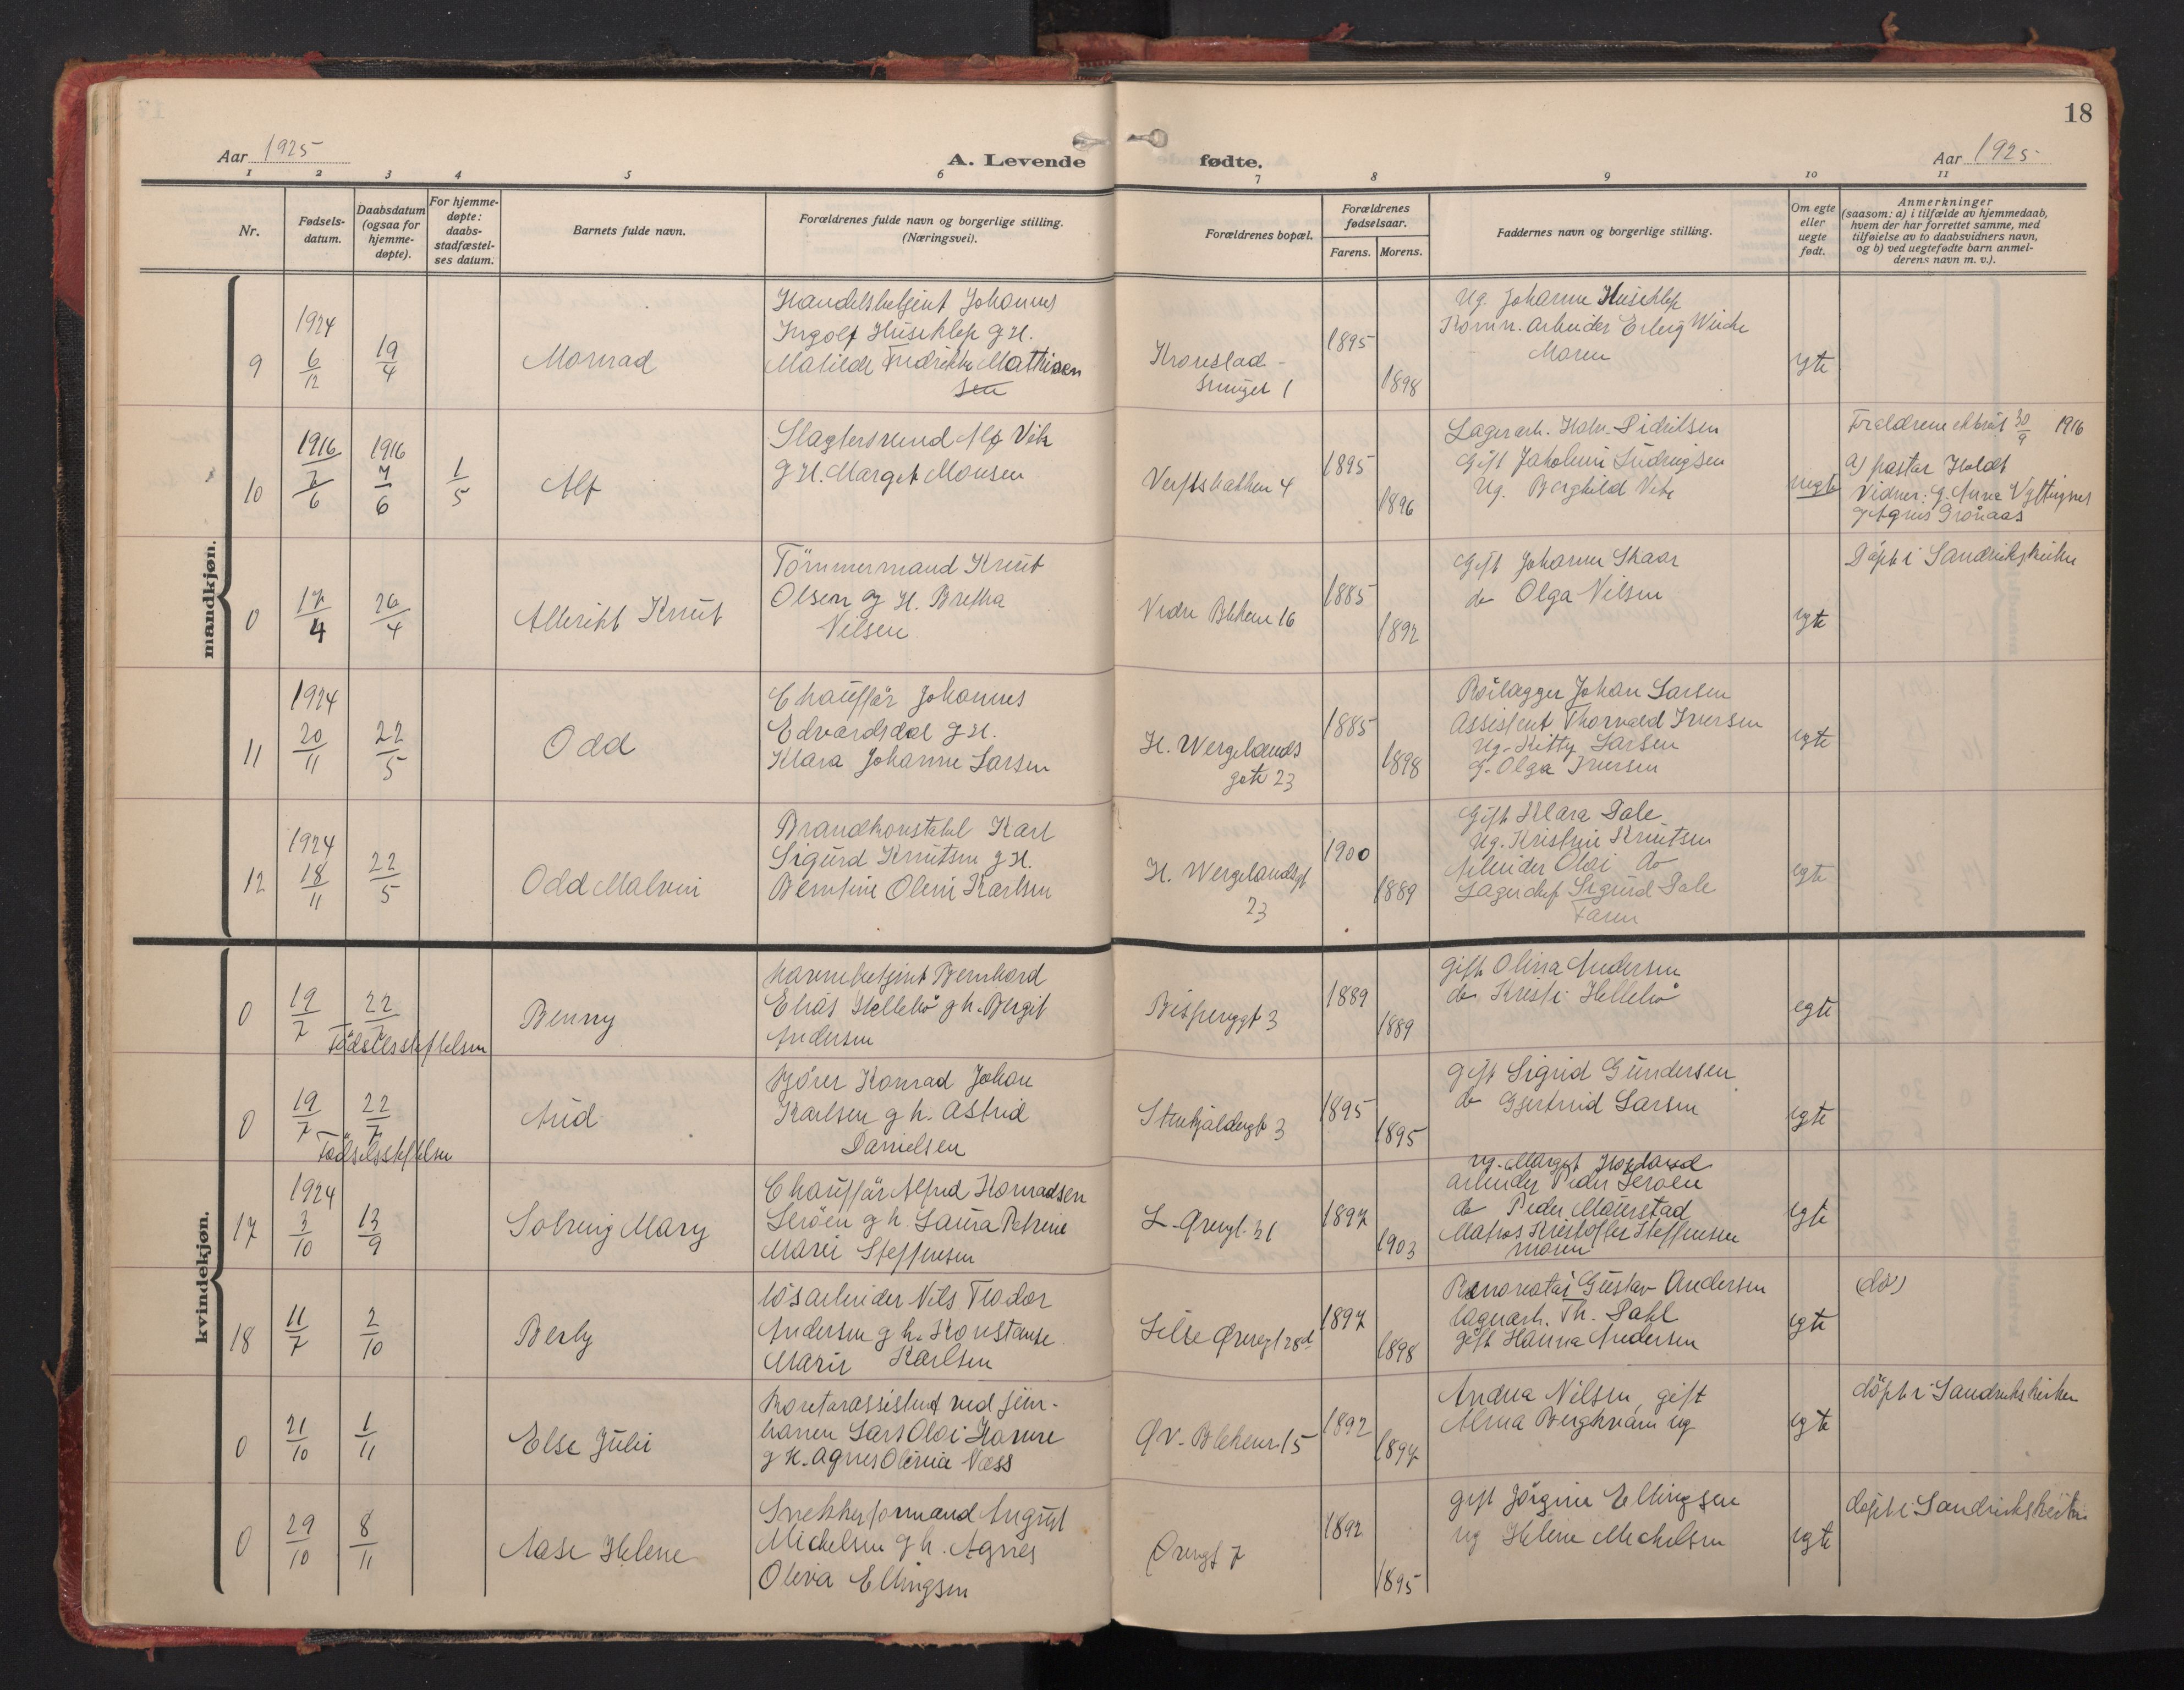 18
Aar 1925
A. Levende fødte.
Aar 1925
1 2 3 4 5 6 7 8 9 10 11
Nr.
Fødsels-
datum.
Daabsdatum
(ogsaa for
hjemme-
døpte).
For hjemme-
døpte:
daabs-
stadfæstel-
ses datum.
Barnets fulde navn.
Forældrenes fulde navn og borgerlige stilling.
(Næringsvei).
Forældrenes bopæl.
Forældrenes
fødselsaar.
Farens. Morens.
Faddernes navn og borgerlige stilling.
Om egte
eller
uegte
født.
Anmerkninger
(saasom: a) i tilfælde av hjemmedaab,
hvem der har forrettet samme, med
tilføielse av to daabsvidners navn,
og b) ved uegtefødte barn anmel-
derens navn m. v.).
mandkjøn.
9
1924
6/12
19/4
Monrad
Handelsbetjent Johannes
Ingolf Huseklep g. H.
Matilde Fredrikke Mathisen
sen
Kronstad-
smuget 1
1895
1898
Ug. Johanne Huseklep
Komm. Arbeider Erling
Moren
egte
10
1916
7/6
1916
7/6
1/5
Alf
Slagtersvend Alf Vik
g H. Marget Monsen
Verftsbakken 4
1895
1896
Lagerarb. Halv. Didriksen
Gift Jakobine Ludvigsen
Ug. Berghild Vik
uegte
Forældrene 30/9 1916
a) pastor Holdt
Vidner: g. Anna
g Agnes Grønaas
0
17/4
26/4
Albrikt Knut
Tömmermand Knut
Olsen g H. Bretha
Nilsen
Nedre Blekevei 16
1885
1892
Gift Johanne Skaar
do Olga Nilsen
egte
Døpt i Sandvikskirken
11
1924
20/11
22/5
Odd
Chauffør Johannes
Edvardsdal g H.
Klara Johanne Larsen
H. Wergelands
gate 23
1885
1898
Rørlægger Johan Larsen
Assistent Thorvald Iversen
Ug. Kitty Larsen
g. Olga Iversen
egte
12
1924
18/11
22/5
Odd Malvin
Brandkonstabel Karl
Sigurd Knutsen g H.
Berntine Oline Karlsen
H. Wergelandsgt
23
1900
1889
Gift Klara Dale
Ug. Kristine Knutsen
Arbeider Olai do
Lagerchef Sigurd Dale
Faren
egte
kvindekjøn.
0
19/7
22/7
Fødselsstiftelsen
Benny
havnebetjent Bernhard
Elias Hellebø g h. Bergit
Andersen
Bispenggt 3
1889
1889
Gift Olina Andersen
do Kristi Hellebø
egte
0
19/7
22/7
Fødselsstiftelsen
Aud
kjører Konrad Johan
Karlsen g h. Astrid
Danielsen
Stenkjeldergt 3
1895
1895
gift Sigrid Gundersen
do Gjertrud Larsen
egte
17
1924
3/10
13/9
Solveig Mary
Chauffør Alfred Konradsen
Serøen g h. Laura Petrine
Marie Steffensen
L. Øregt. 21
1897
1903
ug. Margit Hordand
arbeider Peder Serøen
do Peder Maurstad
Matros Kristoffer Steffensen
moren
egte
18
11/7
2/10
Berly
løsarbeider Nils Teodor
Andersen g h. Konstanse
Marie Karlsen
Lille Øvregt 28d
1897
1898
Gustav Andersen
lagerarb. Th. Dahl
gift Hanna Andersen
egte
(do)
0
21/10
1/11
Else Julie
Kontorassistent ved jern-
banen Lars Olai Hamre
g H. Agnes Olivia Næss
Øv. Blekevei 15
1892
1897
Andrea Nilsen, gift
Alma Berghvam ug
egte
døpt i Sandvikskirken
0
29/10
8/11
Aase Helene
Snekkerformand August
Mickelsen g h. Agnes
Oliva Ellingsen
Øvregt 7
1892
1895
gift Jørgine Ellingsen
ug Helene Michelsen
egte
døpt i Sandvikskirken